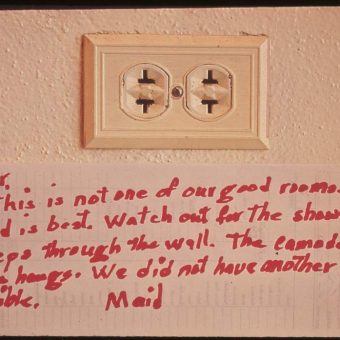 r.
This is not one of our good rooms.
d is best. Watch out for the show
eps through the wall. The camode
hangs. We did not have another
ible. Maid